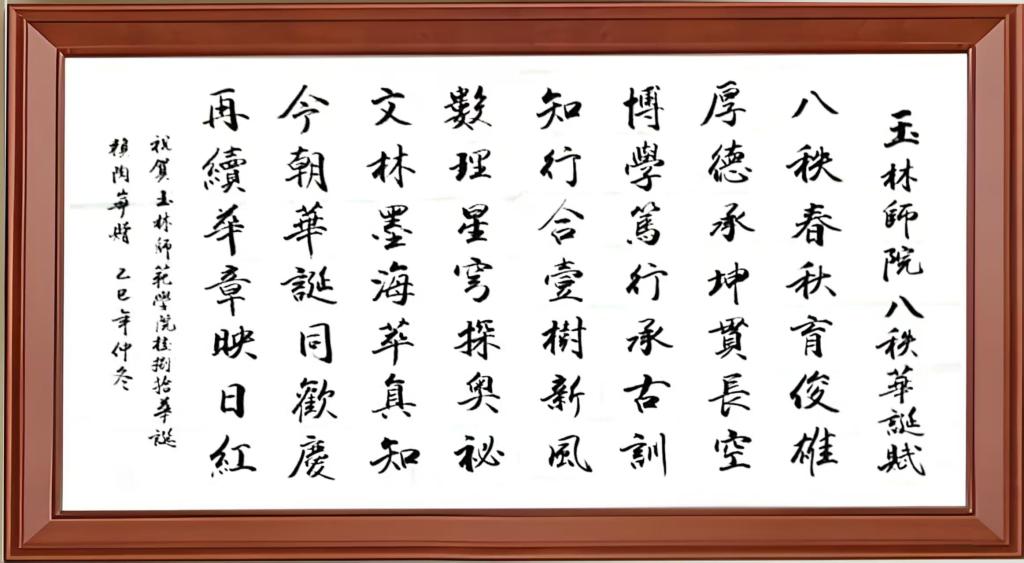 玉林師院八秩華誕賦
八秩春秋育俊雄
厚德承坤貫長空
博學篤行承古訓
知行合壹樹新風
數理星穹探奧祕
文林墨海萃真知
今朝華誕同歡慶
再續華章映日紅
祝賀玉林師範學院校捌拾華誕
乙巳年仲冬